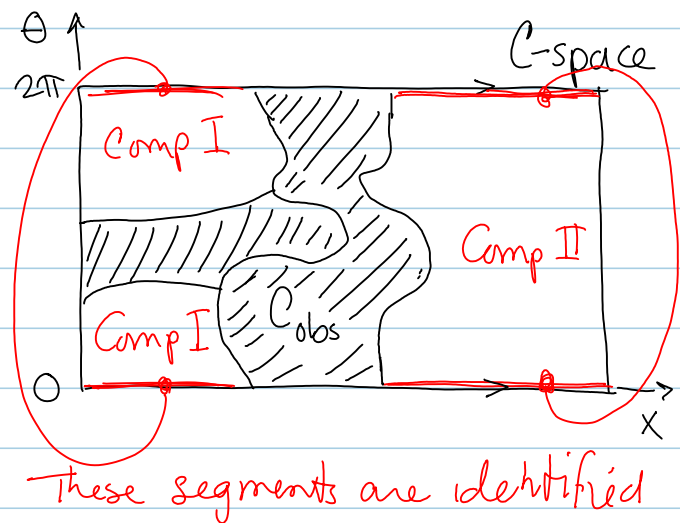 θ
C-space
2π
Comp I
Comp II
Comp I
C obs
0
X
These segments are identified